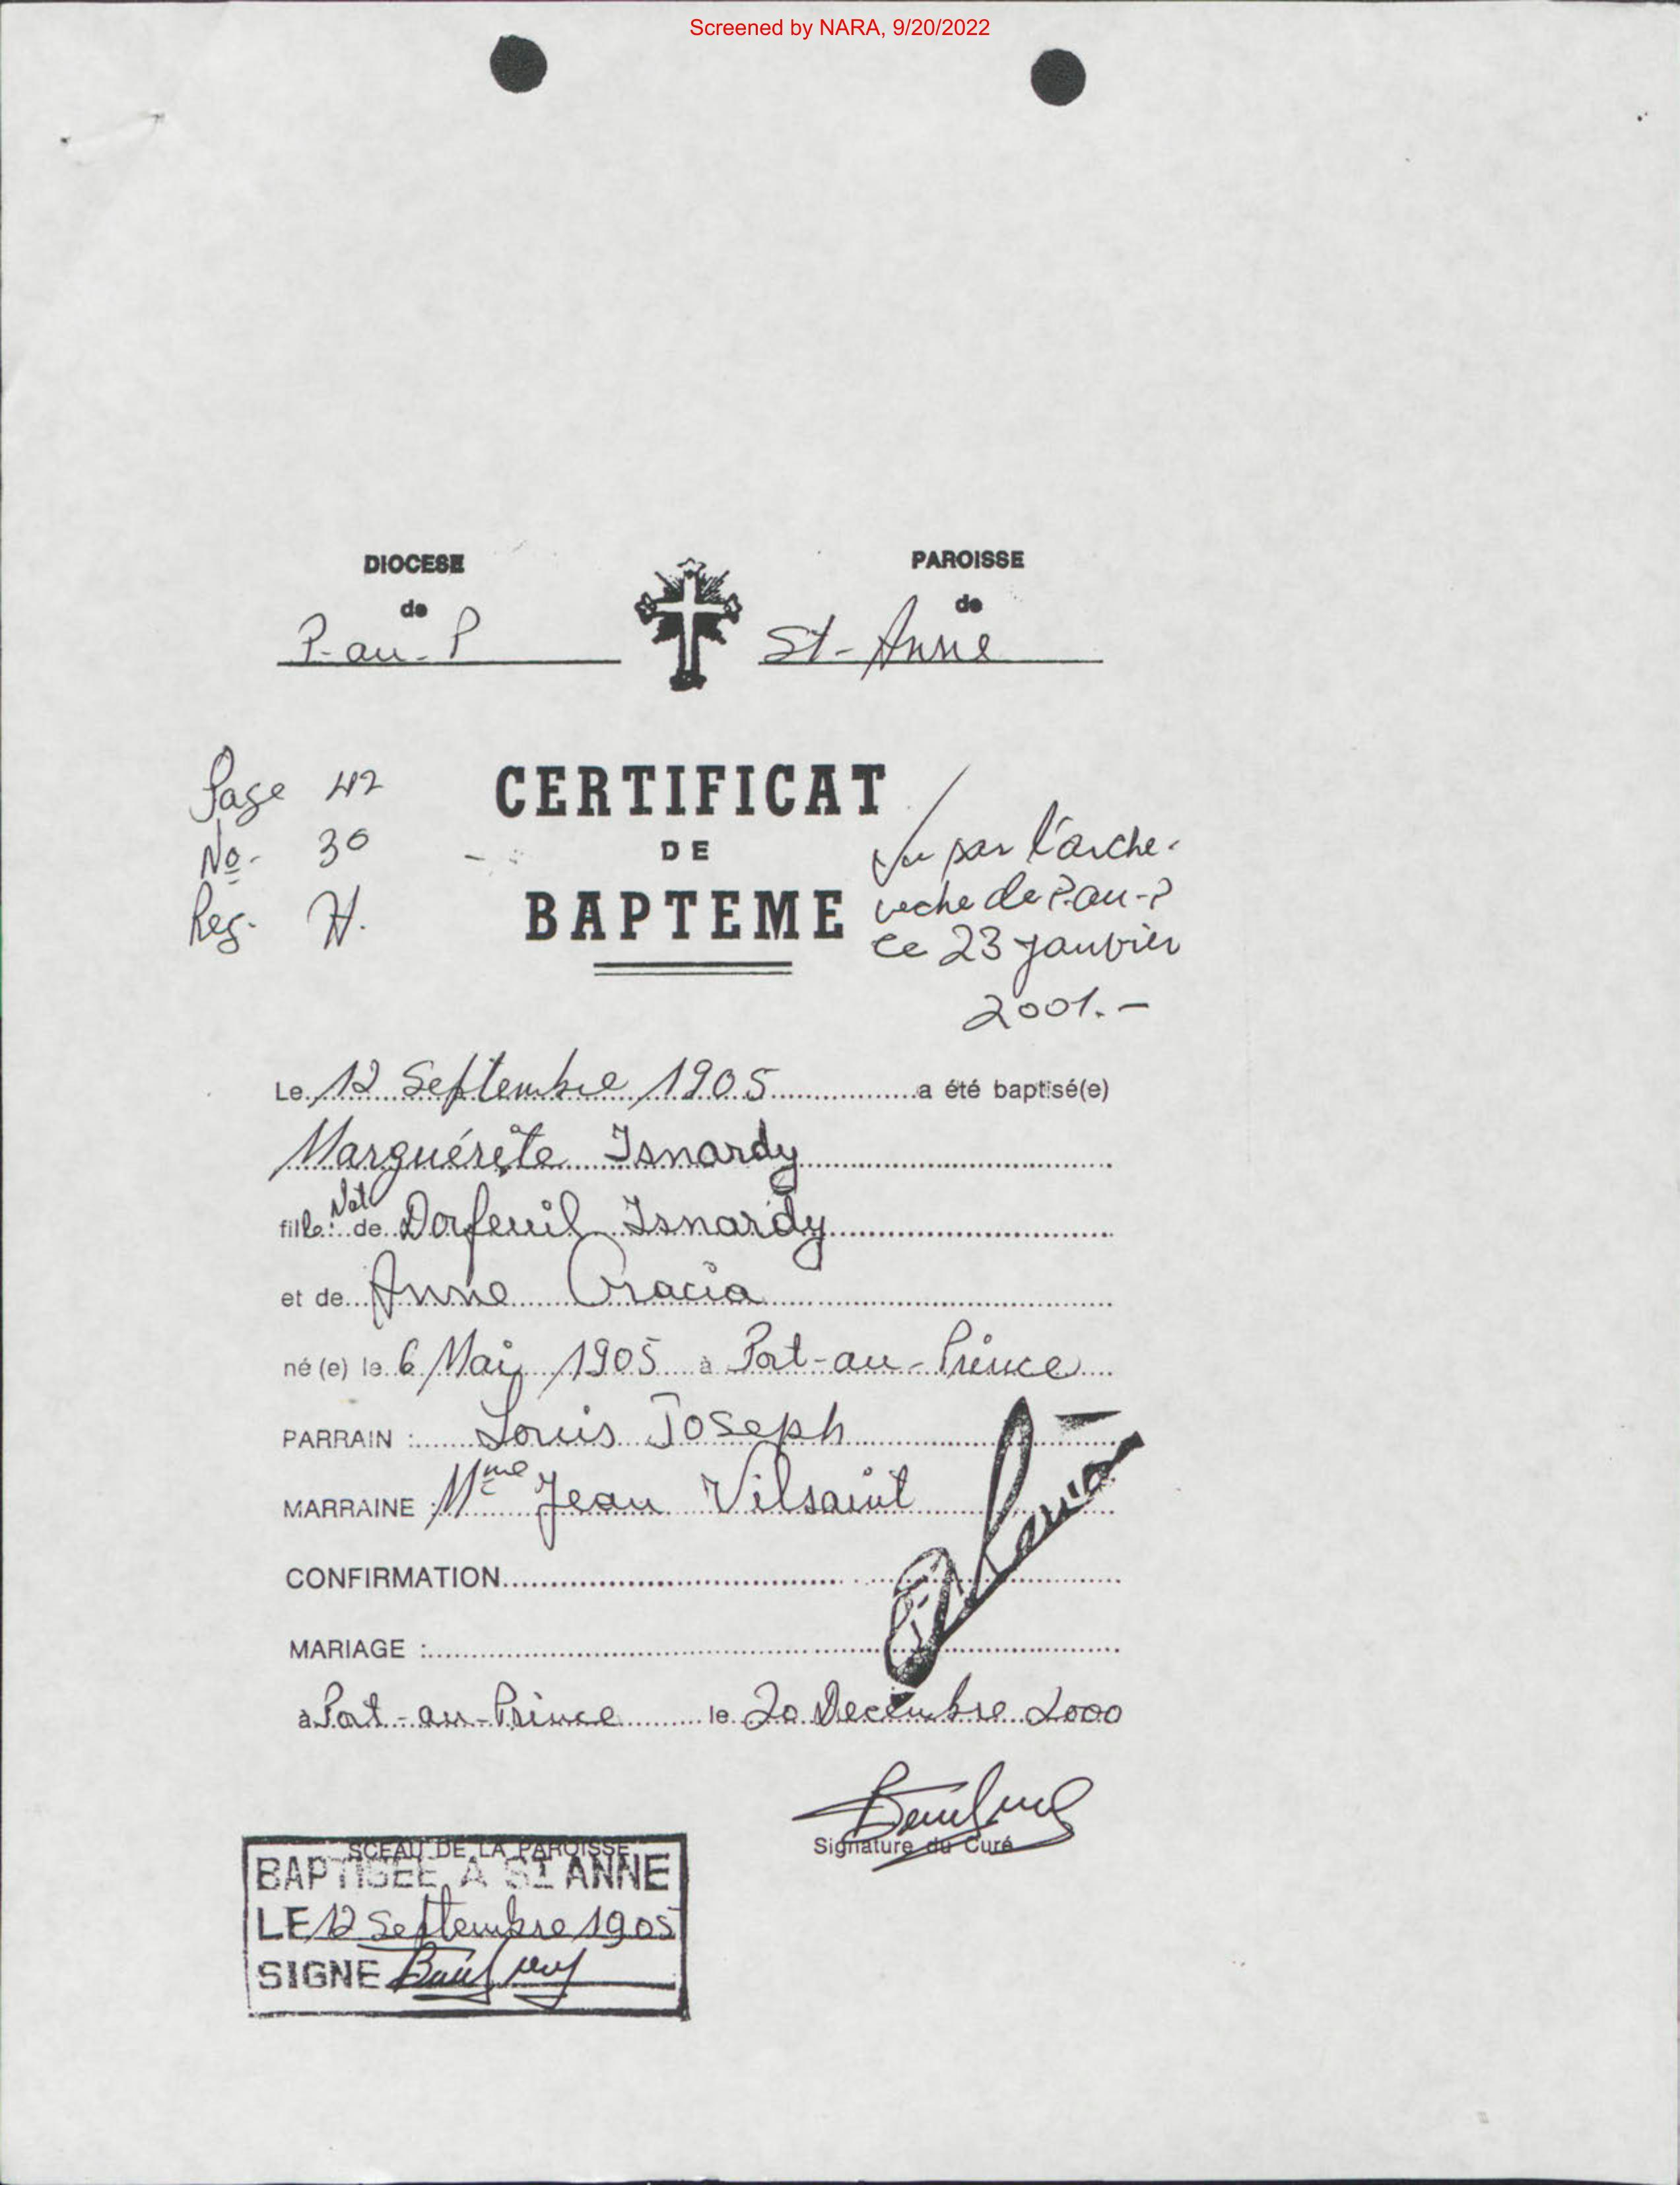 Screened by NARA, 9/20/2022
DIOCESE
de
P-au-P
PAROISSE
de
St-Anne
Page 42
No- 30
Reg. H.
CERTIFICAT
DE
BAPTEME
Vu par l'arche-
veche de P-au-P
ce 23 janvier
2001.-
Le 12 Septembre 1905 a été baptisé(e)
Marguérite Isnardy
fille Nat de Dorfeuil Isnardy
et de Anne Gracia
né (e) le 6 Mai 1905 à Port-au-Prince
PARRAIN : Louis Joseph
MARRAINE : Mme Jean Vilsaint
CONFIRMATION
MARIAGE :
à Port-au-Prince le 20 Decembre 2000
Signature du Curé
SCEAU DE LA PAROISSE
BAPTISEE A ST ANNE
LE 12 Septembre 1905
SIGNE